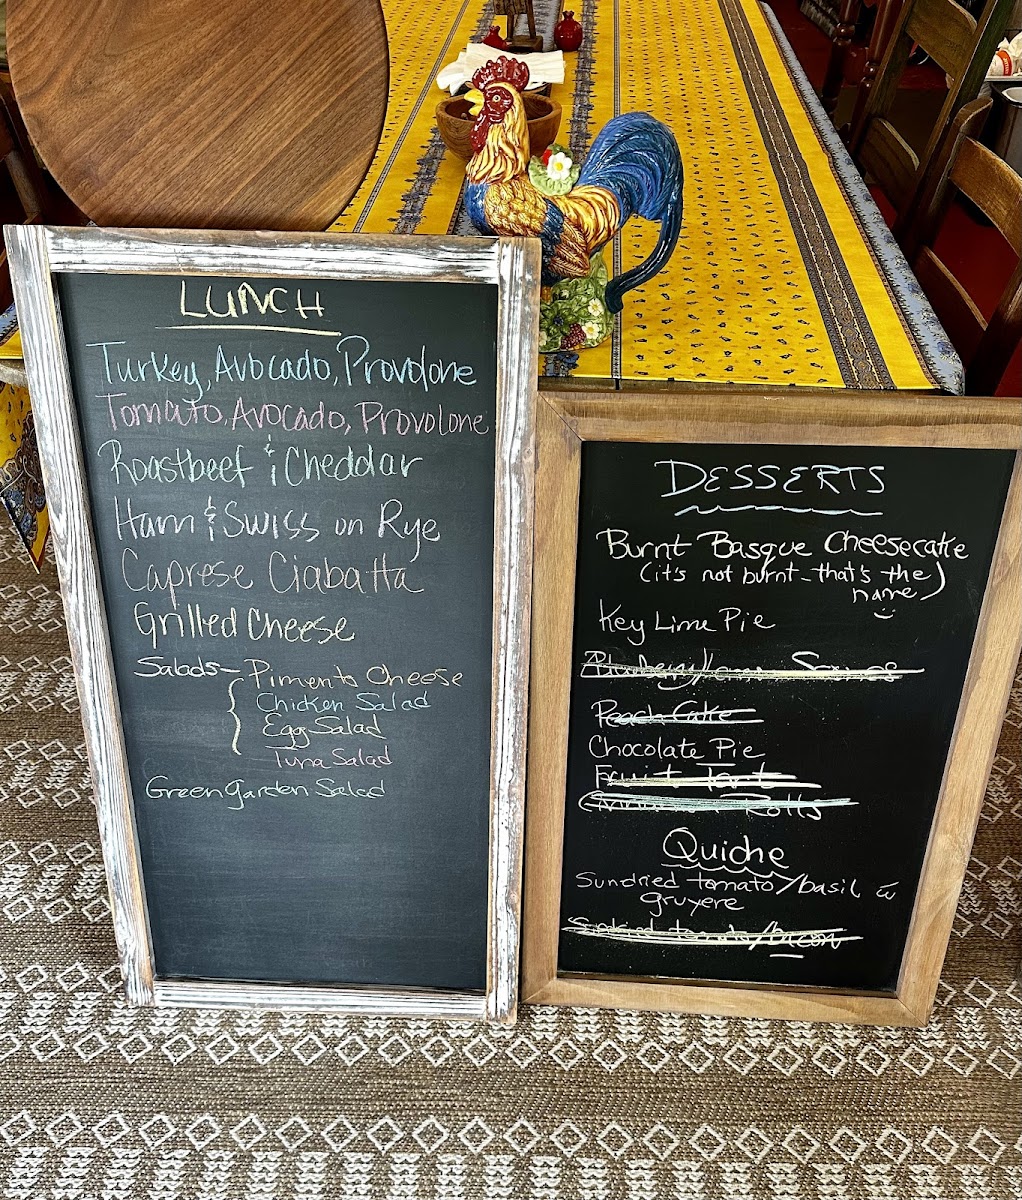 LUNCH
Turkey, Avocado, Provolone
Tomato, Avocado, Provolone
Roastbeef & Cheddar
Ham & Swiss on Rye
Caprese Ciabatta
Grilled Cheese
Salads - Pimento Cheese
Chicken Salad
Egg Salad
Tuna Salad
Green garden Salad
DESSERTS
Burnt Basque Cheesecake
(it's not burnt - that's the
name)
Key Lime Pie
Blueberry/Lemon Scones
Peach Cake
Chocolate Pie
Fruit Tart
Cinnamon Rolls
Quiche
Sundried tomato/basil w
gruyere
tomato/bacon